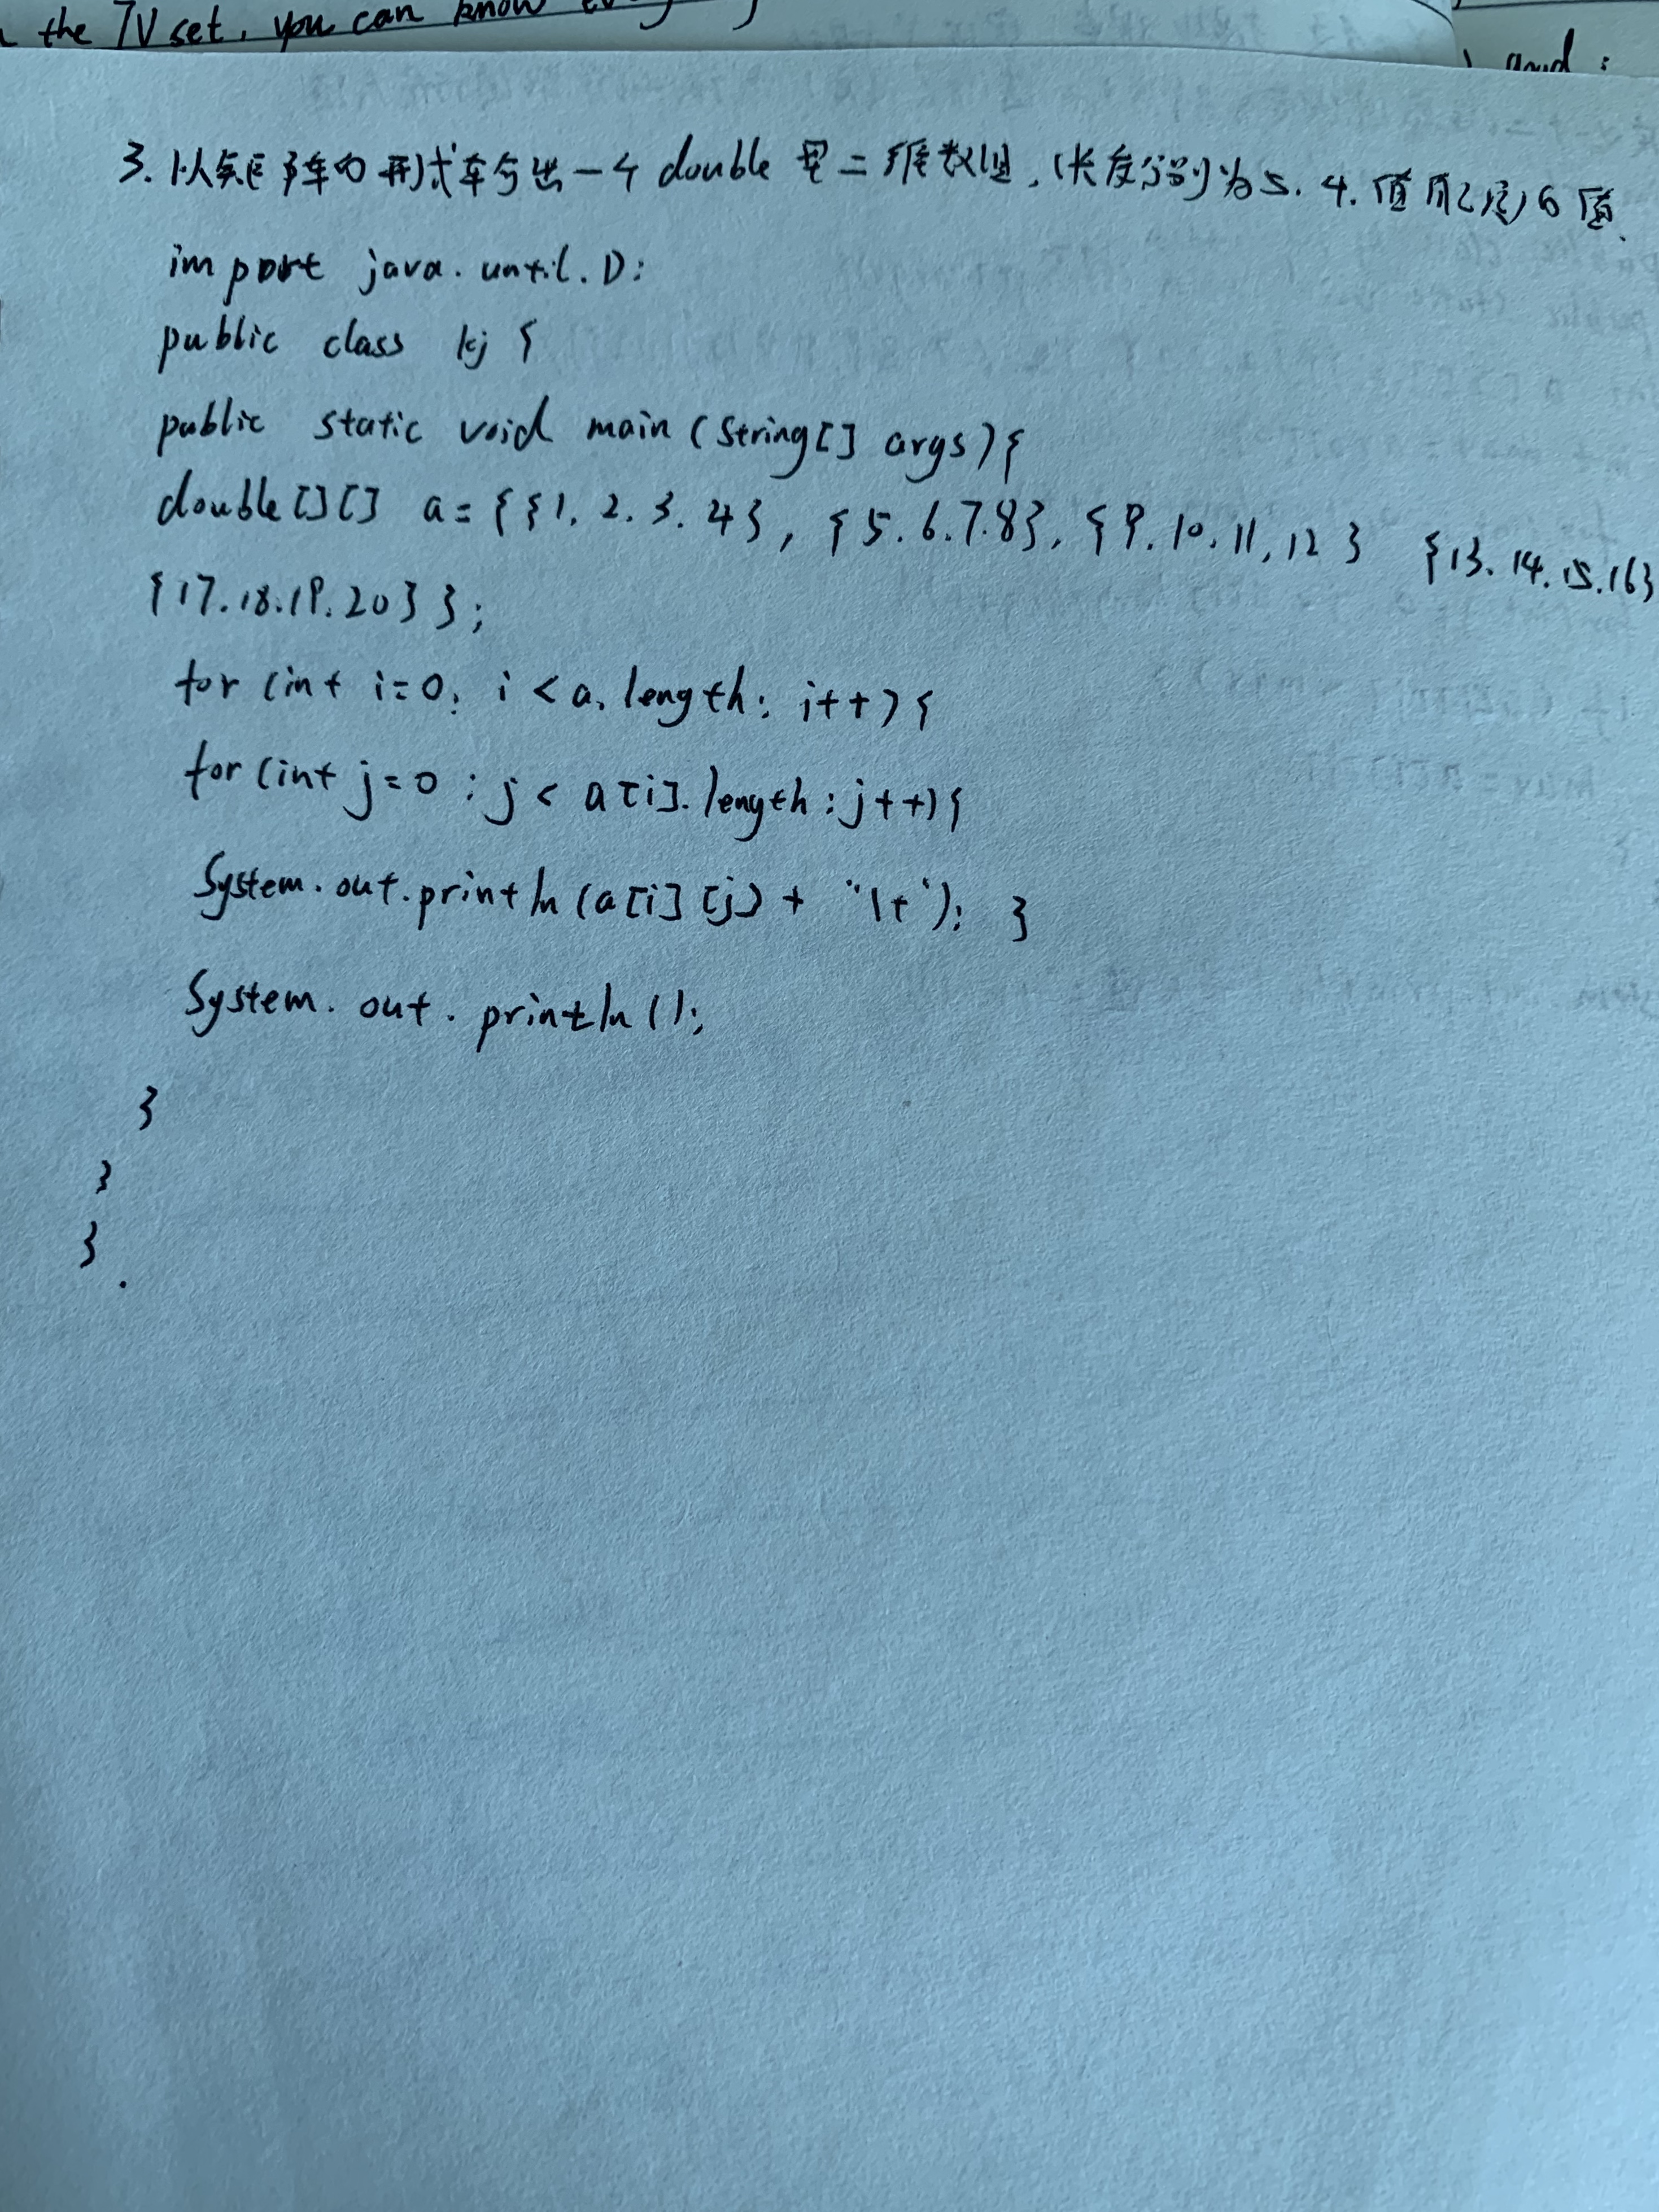 the TV set, you can know
and :
3. 以矩阵的形式输出一个 double 型二维数组.(长度分别为5.4.值自己定)的值.
import java.until.D:
public class kj {
public static void main (String[] args){
double[][] a={{1.2.3.4},{5.6.7.8},{9.10.11,12} {13.14.15.16}
{17.18.19.20}};
for (int i=0; i<a.length; i++){
for (int j=0 ; j< a[i].length ; j++){
System.out.println (a[i][j]+ "\t"); }
System.out.println();
}
}
}.